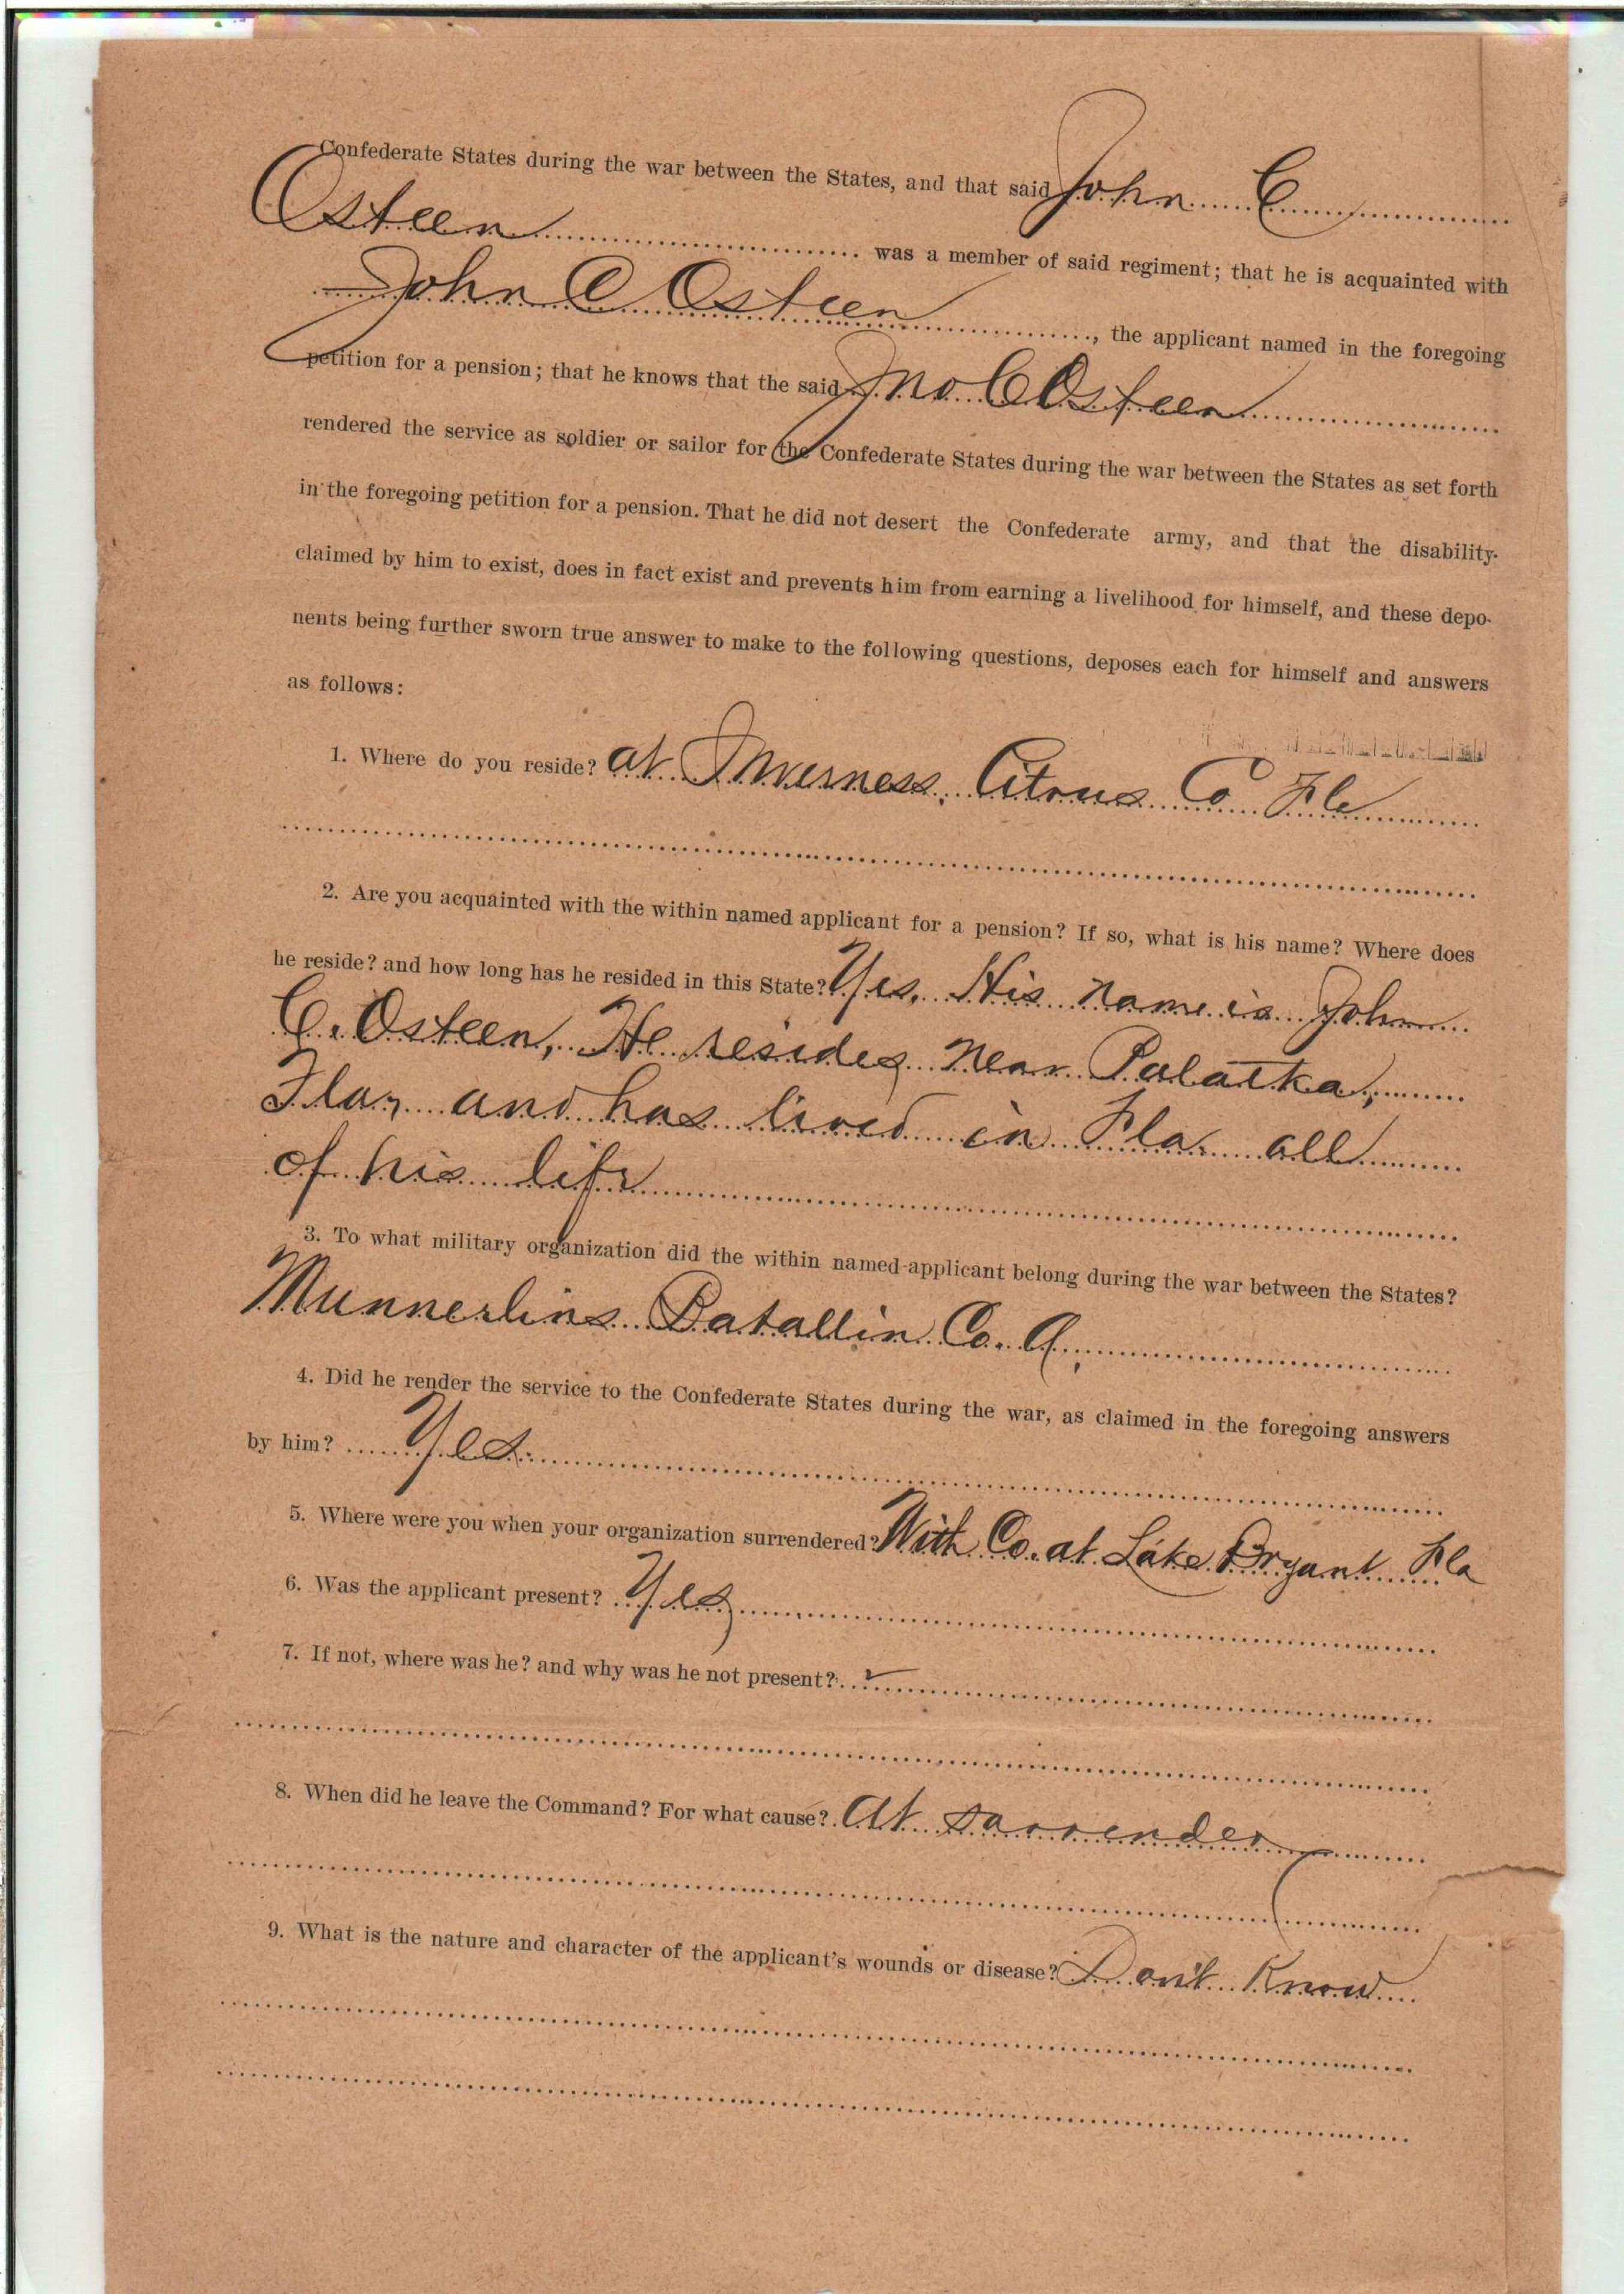 Confederate States during the war between the States, and that said John C
Osteen was a member of said regiment; that he is acquainted with
John C Osteen, the applicant named in the foregoing
petition for a pension; that he knows that the said Jno C Osteen
rendered the service as soldier or sailor for the Confederate States during the war between the States as set forth
in the foregoing petition for a pension. That he did not desert the Confederate army, and that the disability
claimed by him to exist, does in fact exist and prevents him from earning a livelihood for himself, and these depo-
nents being further sworn true answer to make to the following questions, deposes each for himself and answers
as follows:
1. Where do you reside? at Inverness, Citrus Co Fla
2. Are you acquainted with the within named applicant for a pension? If so, what is his name? Where does
he reside? and how long has he resided in this State? Yes. His name is John
C. Osteen, He resides near Palatka,
Fla, and has lived in Fla. all
of his life
3. To what military organization did the within named applicant belong during the war between the States?
Munnerlins Batallin Co. A.
4. Did he render the service to the Confederate States during the war, as claimed in the foregoing answers
by him? Yes.
5. Where were you when your organization surrendered? With Co. at Lake Bryant Fla
6. Was the applicant present? Yes
7. If not, where was he? and why was he not present?
8. When did he leave the Command? For what cause? At surrender
9. What is the nature and character of the applicant's wounds or disease? Don't Know